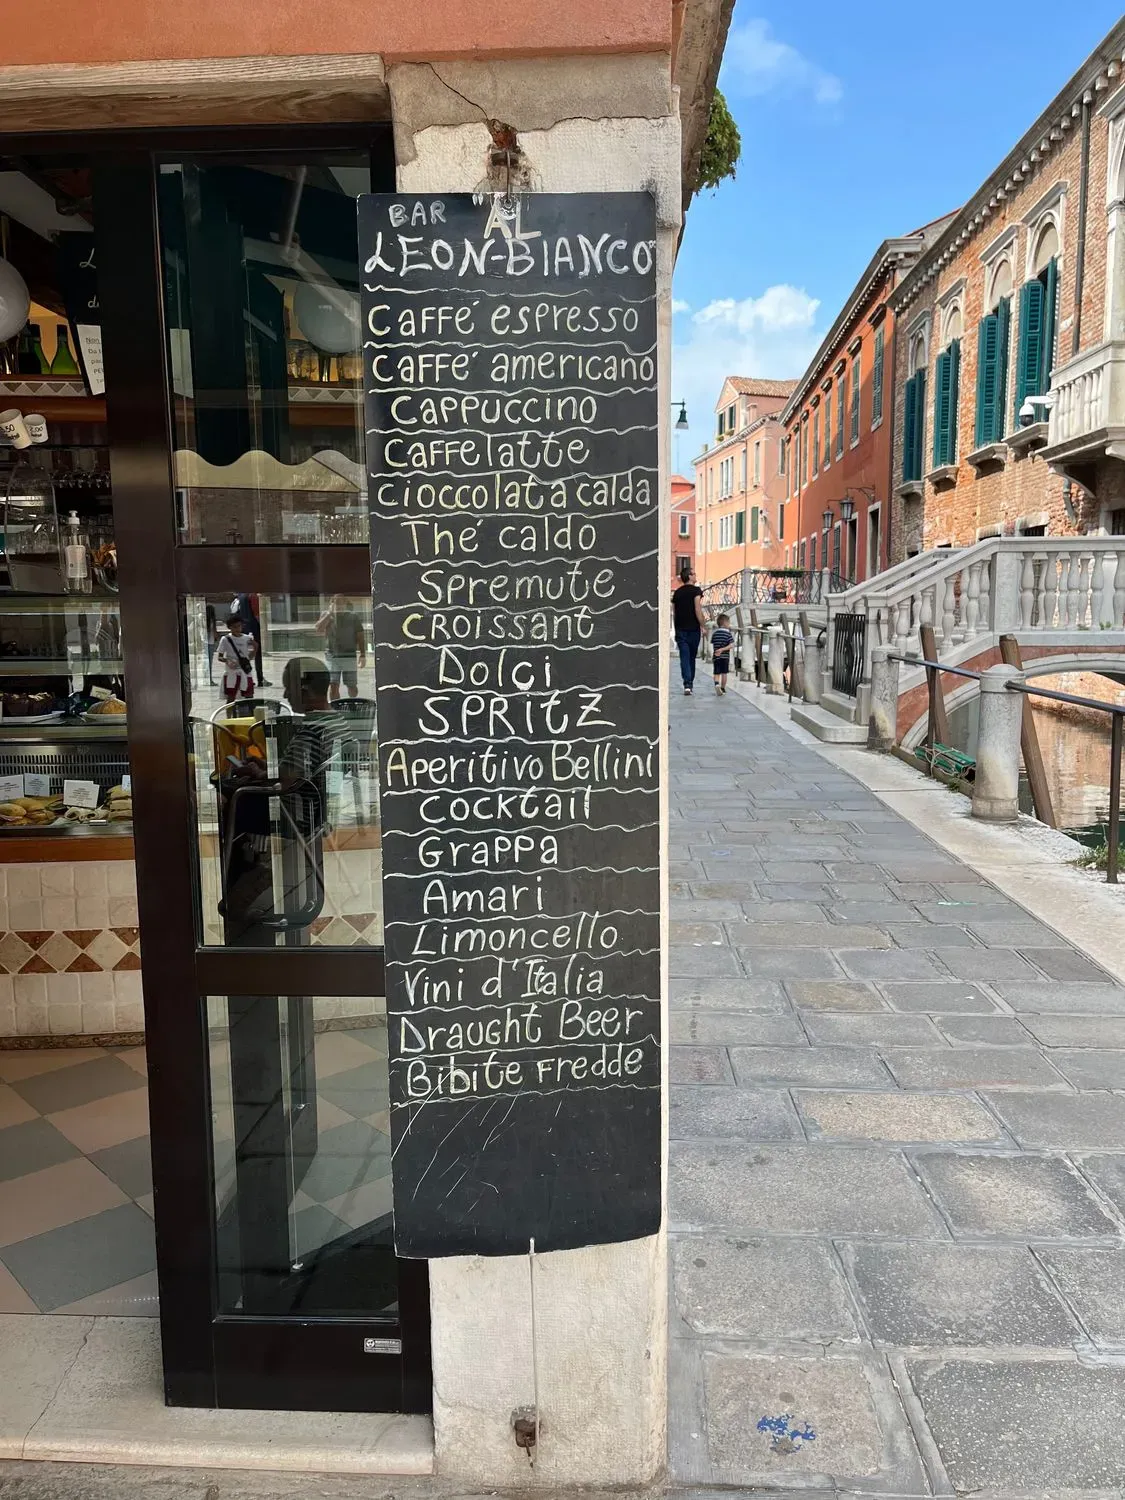 BAR "AL
LEON-BIANCO"
Caffé espresso
Caffé americano
Cappuccino
Caffelatte
Cioccolata calda
Thé caldo
Spremute
Croissant
Dolci
SPRITZ
Aperitivo Bellini
Cocktail
Grappa
Amari
Limoncello
Vini d'Italia
Draught Beer
Bibite Fredde